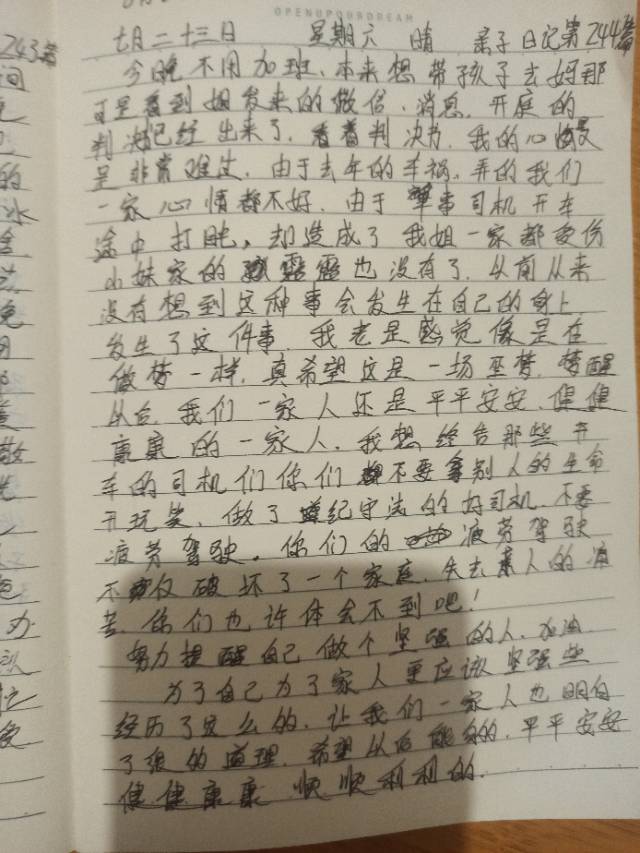 OPENUPYOURDREAM
七月二十三日 星期六 晴 亲子日记第244篇
今晚不用加班、本来想带孩子去妈那
可是看到姐发来的微信、消息、开庭的
判决已经出来了、看着判决书、我的心情
是非常难过、由于去年的车祸、弄的我们
一家心情都不好、由于肇事司机开车
途中打盹，却造成了我姐一家都受伤
小妹家的露露也没有了、从前从来
没有想到这种事会发生在自己的身上
发生了这件事、我老是感觉像是在
做梦一样、真希望这是一场恶梦、梦醒
以后、我们一家人还是平平安安、健健
康康的一家人、我想经告那些开
车的司机们你们不要拿别人的生命
开玩笑、做了遵纪守法的好司机、不要
疲劳驾驶。你们的疲劳驾驶
不仅破坏了一个家庭、失去亲人的痛
苦、你们也许体会不到吧！
努力提醒自己做个坚强的人、加油
为了自己为了家人更应该坚强些
经历了这么的、让我们一家人也明白
了很的道理、希望以后能的、平平安安
健健康康 顺顺利利的、
243篇
间
的
冰
晚
散
先
办
队
忙